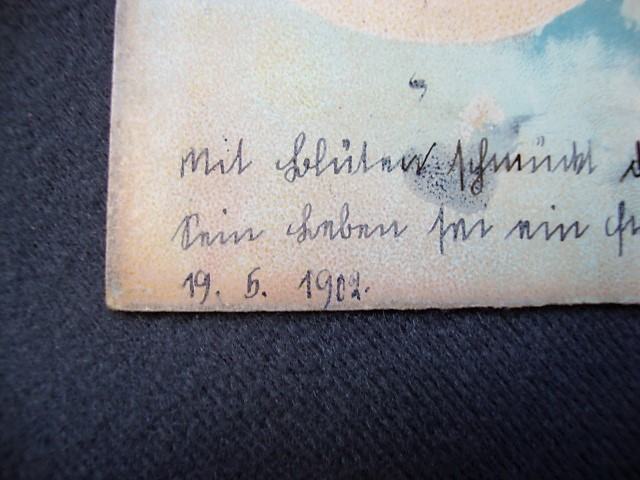 Mit Blüten schmückt
Sein Leben sei ein
19. 5. 1902.